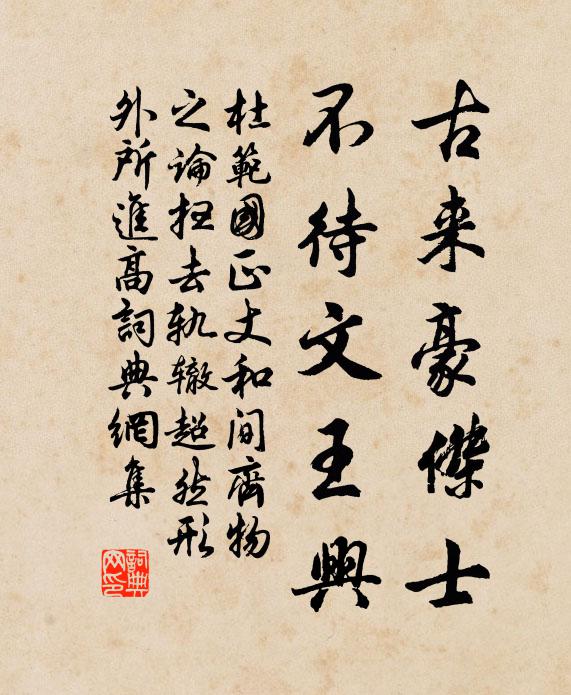 古来豪傑士
不待文王興
杜範國正丈和間齊物
之論扭去軌辙超然形
外所進高詞典網集
詞典网印